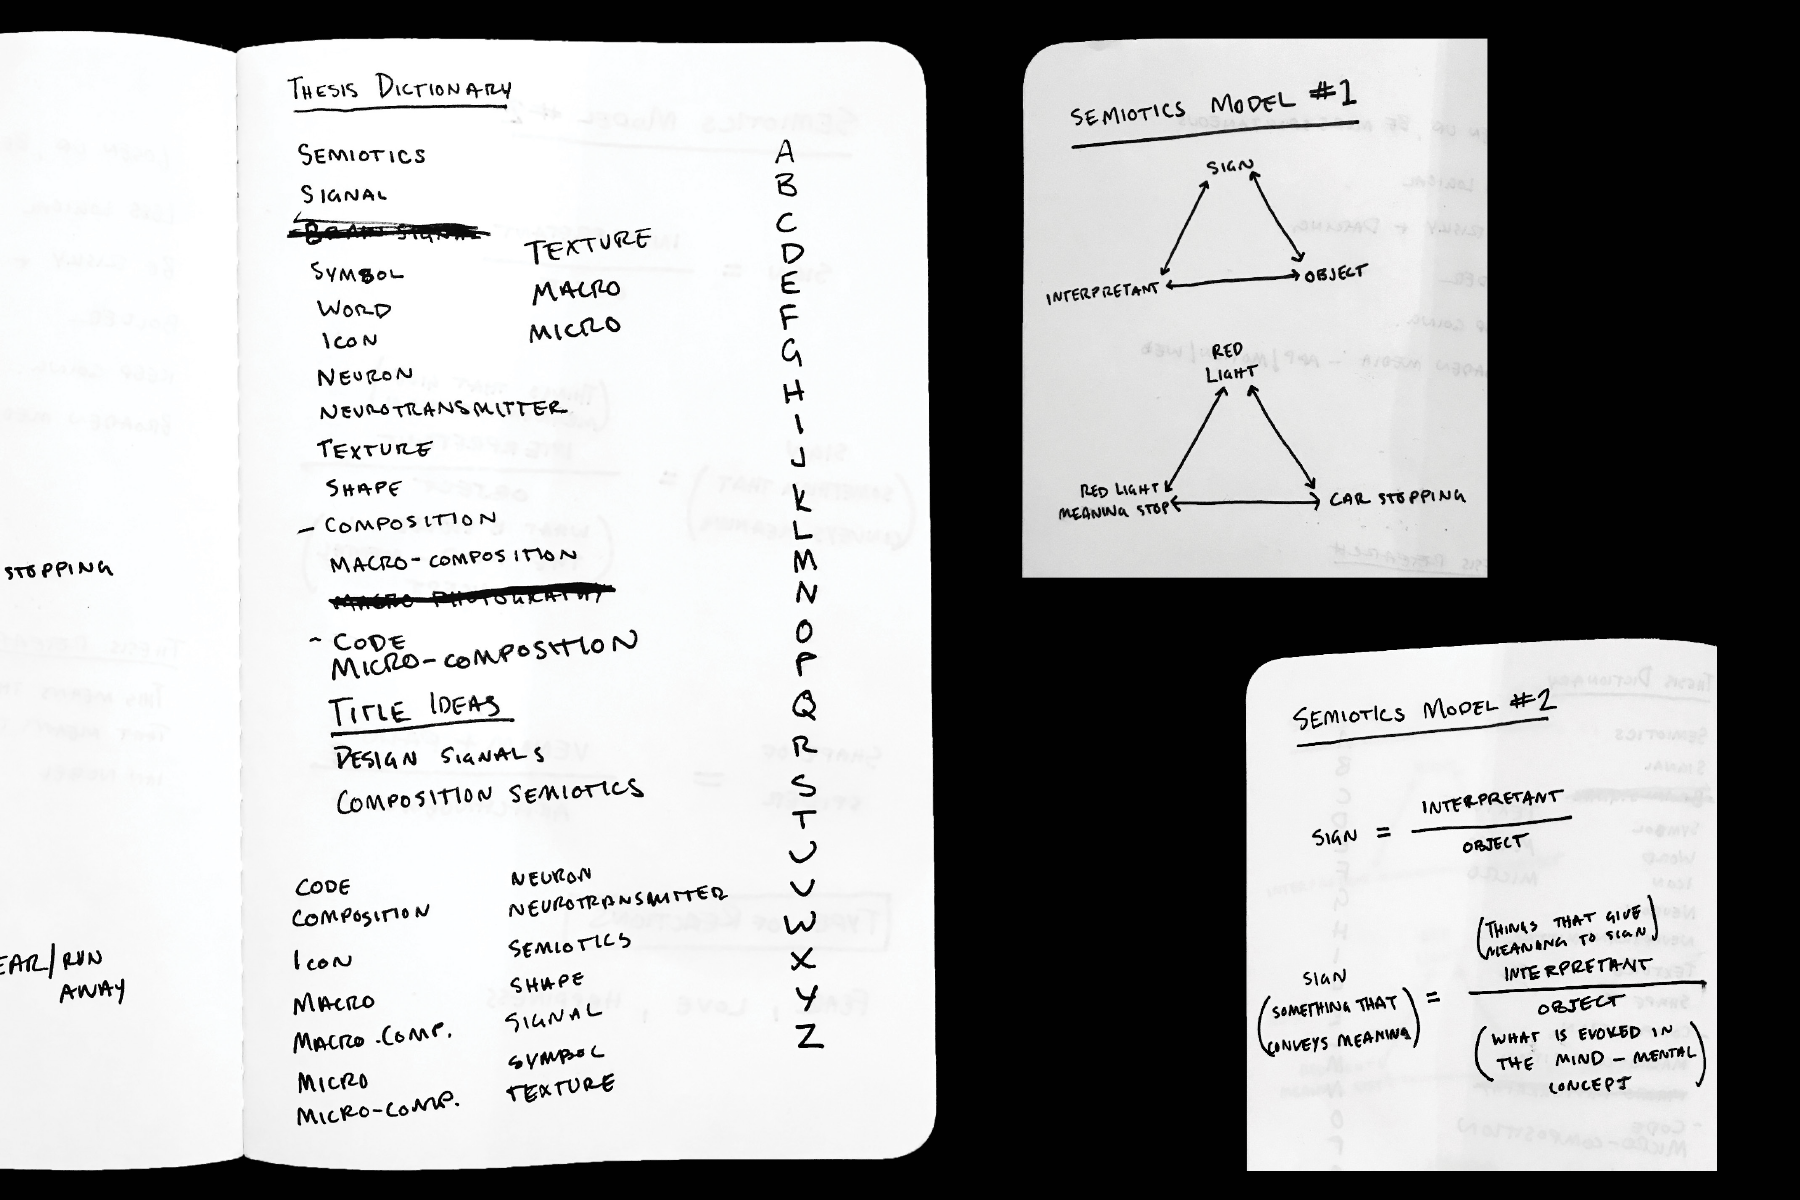 STOPPING
EAR/RUN
AWAY
THESIS DICTIONARY
SEMIOTICS
SIGNAL
BRAIN SIGNAL
SYMBOL
WORD
ICON
NEURON
NEUROTRANSMITTER
TEXTURE
SHAPE
- COMPOSITION
MACRO-COMPOSITION
MACRO PHOTOGRAPHY
- CODE
MICRO-COMPOSITION
TEXTURE
MACRO
MICRO
TITLE IDEAS
DESIGN SIGNALS
COMPOSITION SEMIOTICS
CODE
COMPOSITION
ICON
MACRO
MACRO-COMP.
MICRO
MICRO-COMP.
NEURON
NEUROTRANSMITTER
SEMIOTICS
SHAPE
SIGNAL
SYMBOL
TEXTURE
A
B
C
D
E
F
G
H
I
J
K
L
M
N
O
P
Q
R
S
T
U
V
W
X
Y
Z
SEMIOTICS MODEL #1
SIGN
INTERPRETANT
OBJECT
RED
LIGHT
RED LIGHT
MEANING STOP
CAR STOPPING
SEMIOTICS MODEL #2
SIGN =
INTERPRETANT
OBJECT
SIGN
(SOMETHING THAT
CONVEYS MEANING)
=
(THINGS THAT GIVE
MEANING TO SIGN)
INTERPRETANT
OBJECT
(WHAT IS EVOKED IN
THE MIND - MENTAL
CONCEPT)